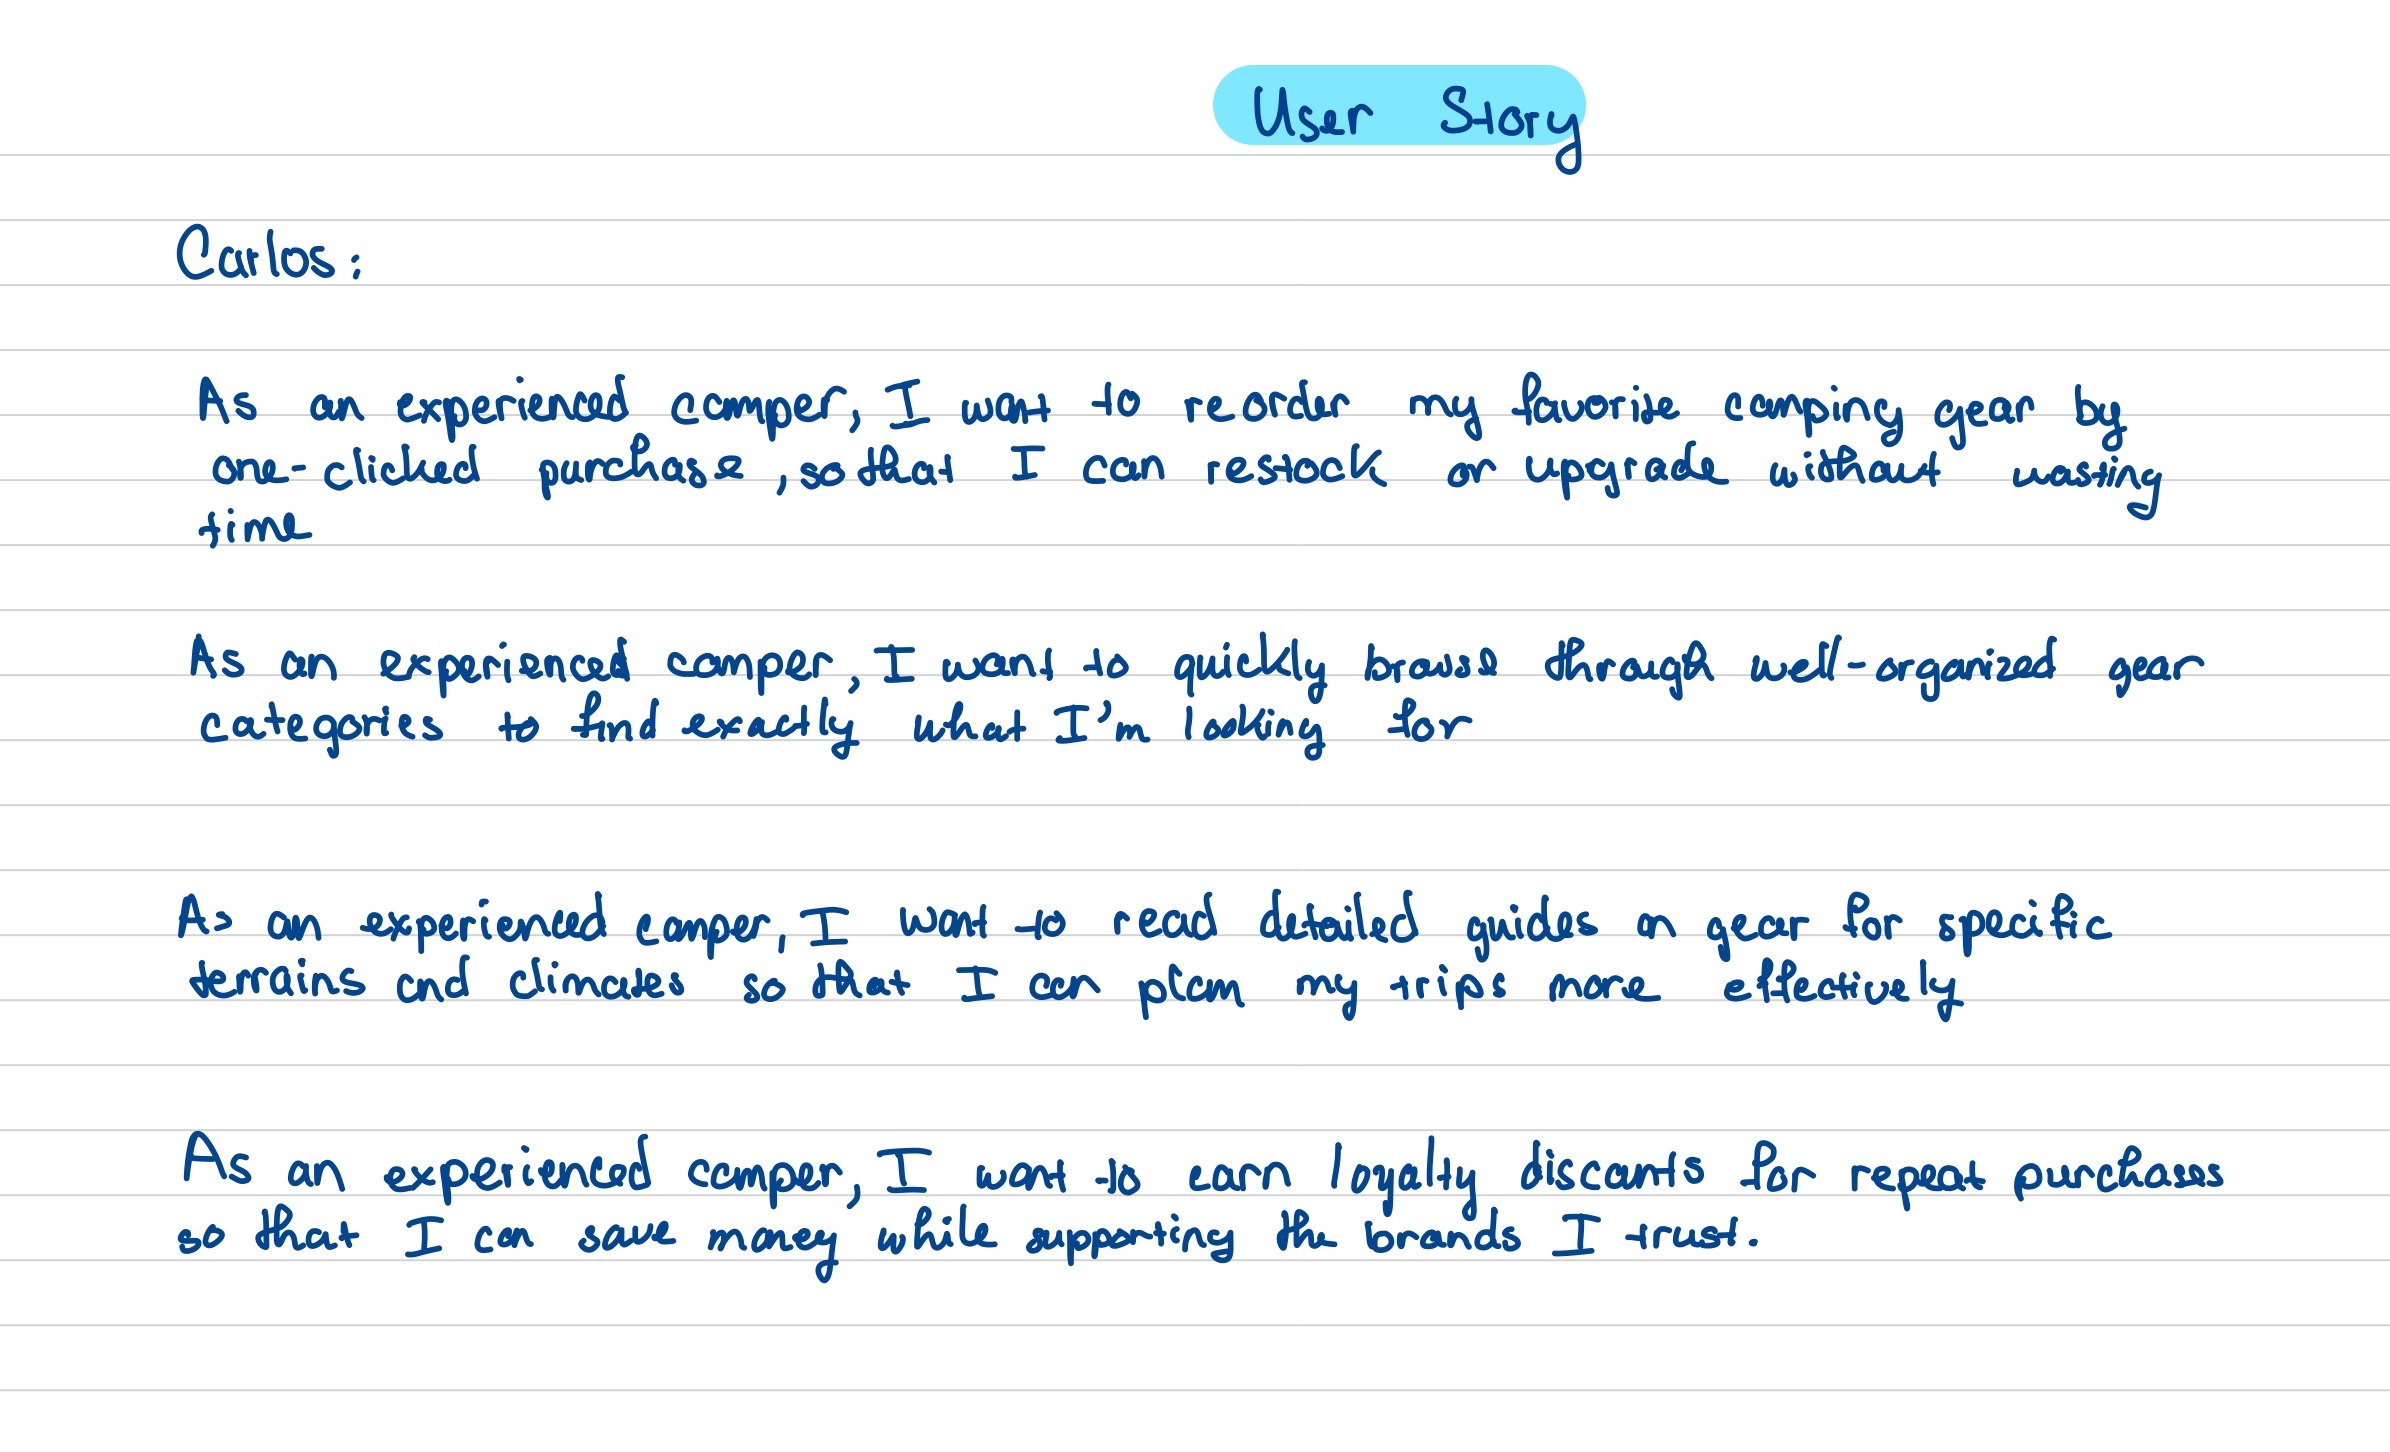 User Story
Carlos:
As an experienced camper, I want to reorder my favorite camping gear by
one-clicked purchase, so that I can restock or upgrade without wasting
time
As an experienced camper, I want to quickly browse through well-organized gear
categories to find exactly what I'm looking for
As an experienced camper, I want to read detailed guides on gear for specific
terrains and climates so that I can plan my trips more effectively
As an experienced camper, I want to earn loyalty discants for repeat purchases
so that I can save money while supporting the brands I trust.